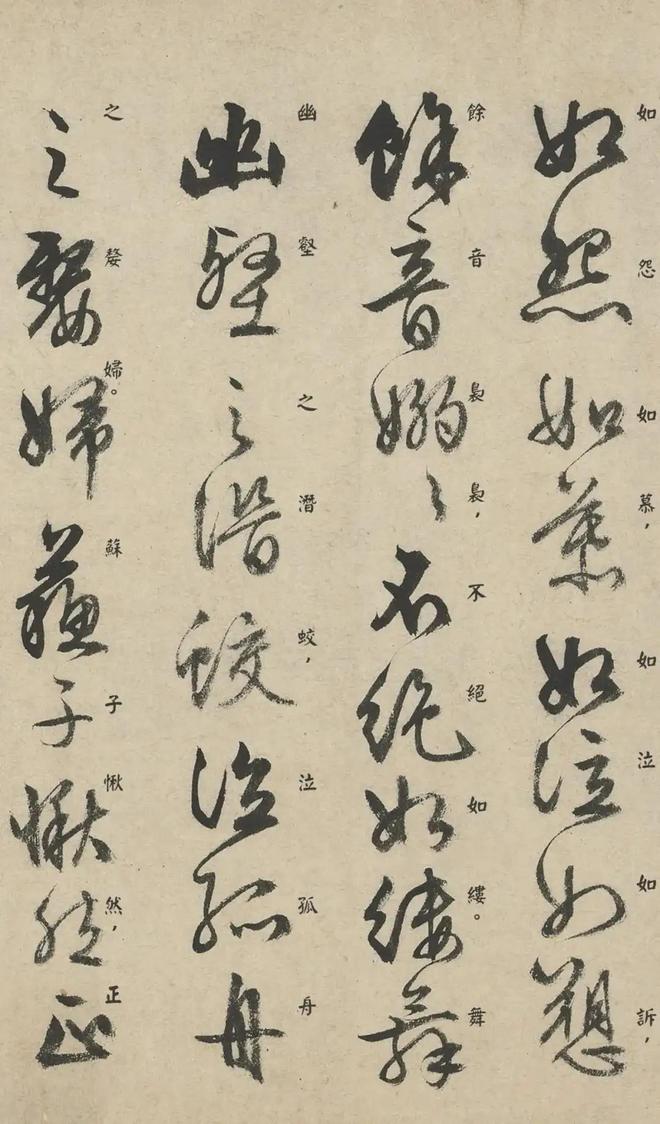 如怨如慕，如泣如訴，
如怨如慕如泣如愬
餘音裊裊，不絕如縷。舞
餘音嫋〻不絕如縷舞
幽壑之潛蛟，泣孤舟
幽壑之潛蛟泣孤舟
之嫠婦。蘇子愀然，正
之嫠婦蘇子愀然正